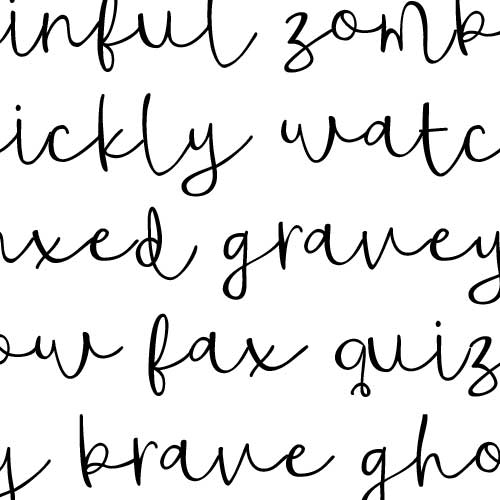 inful zomb
ickly watc
nxed gravey
ow fax quiz
y brave gho